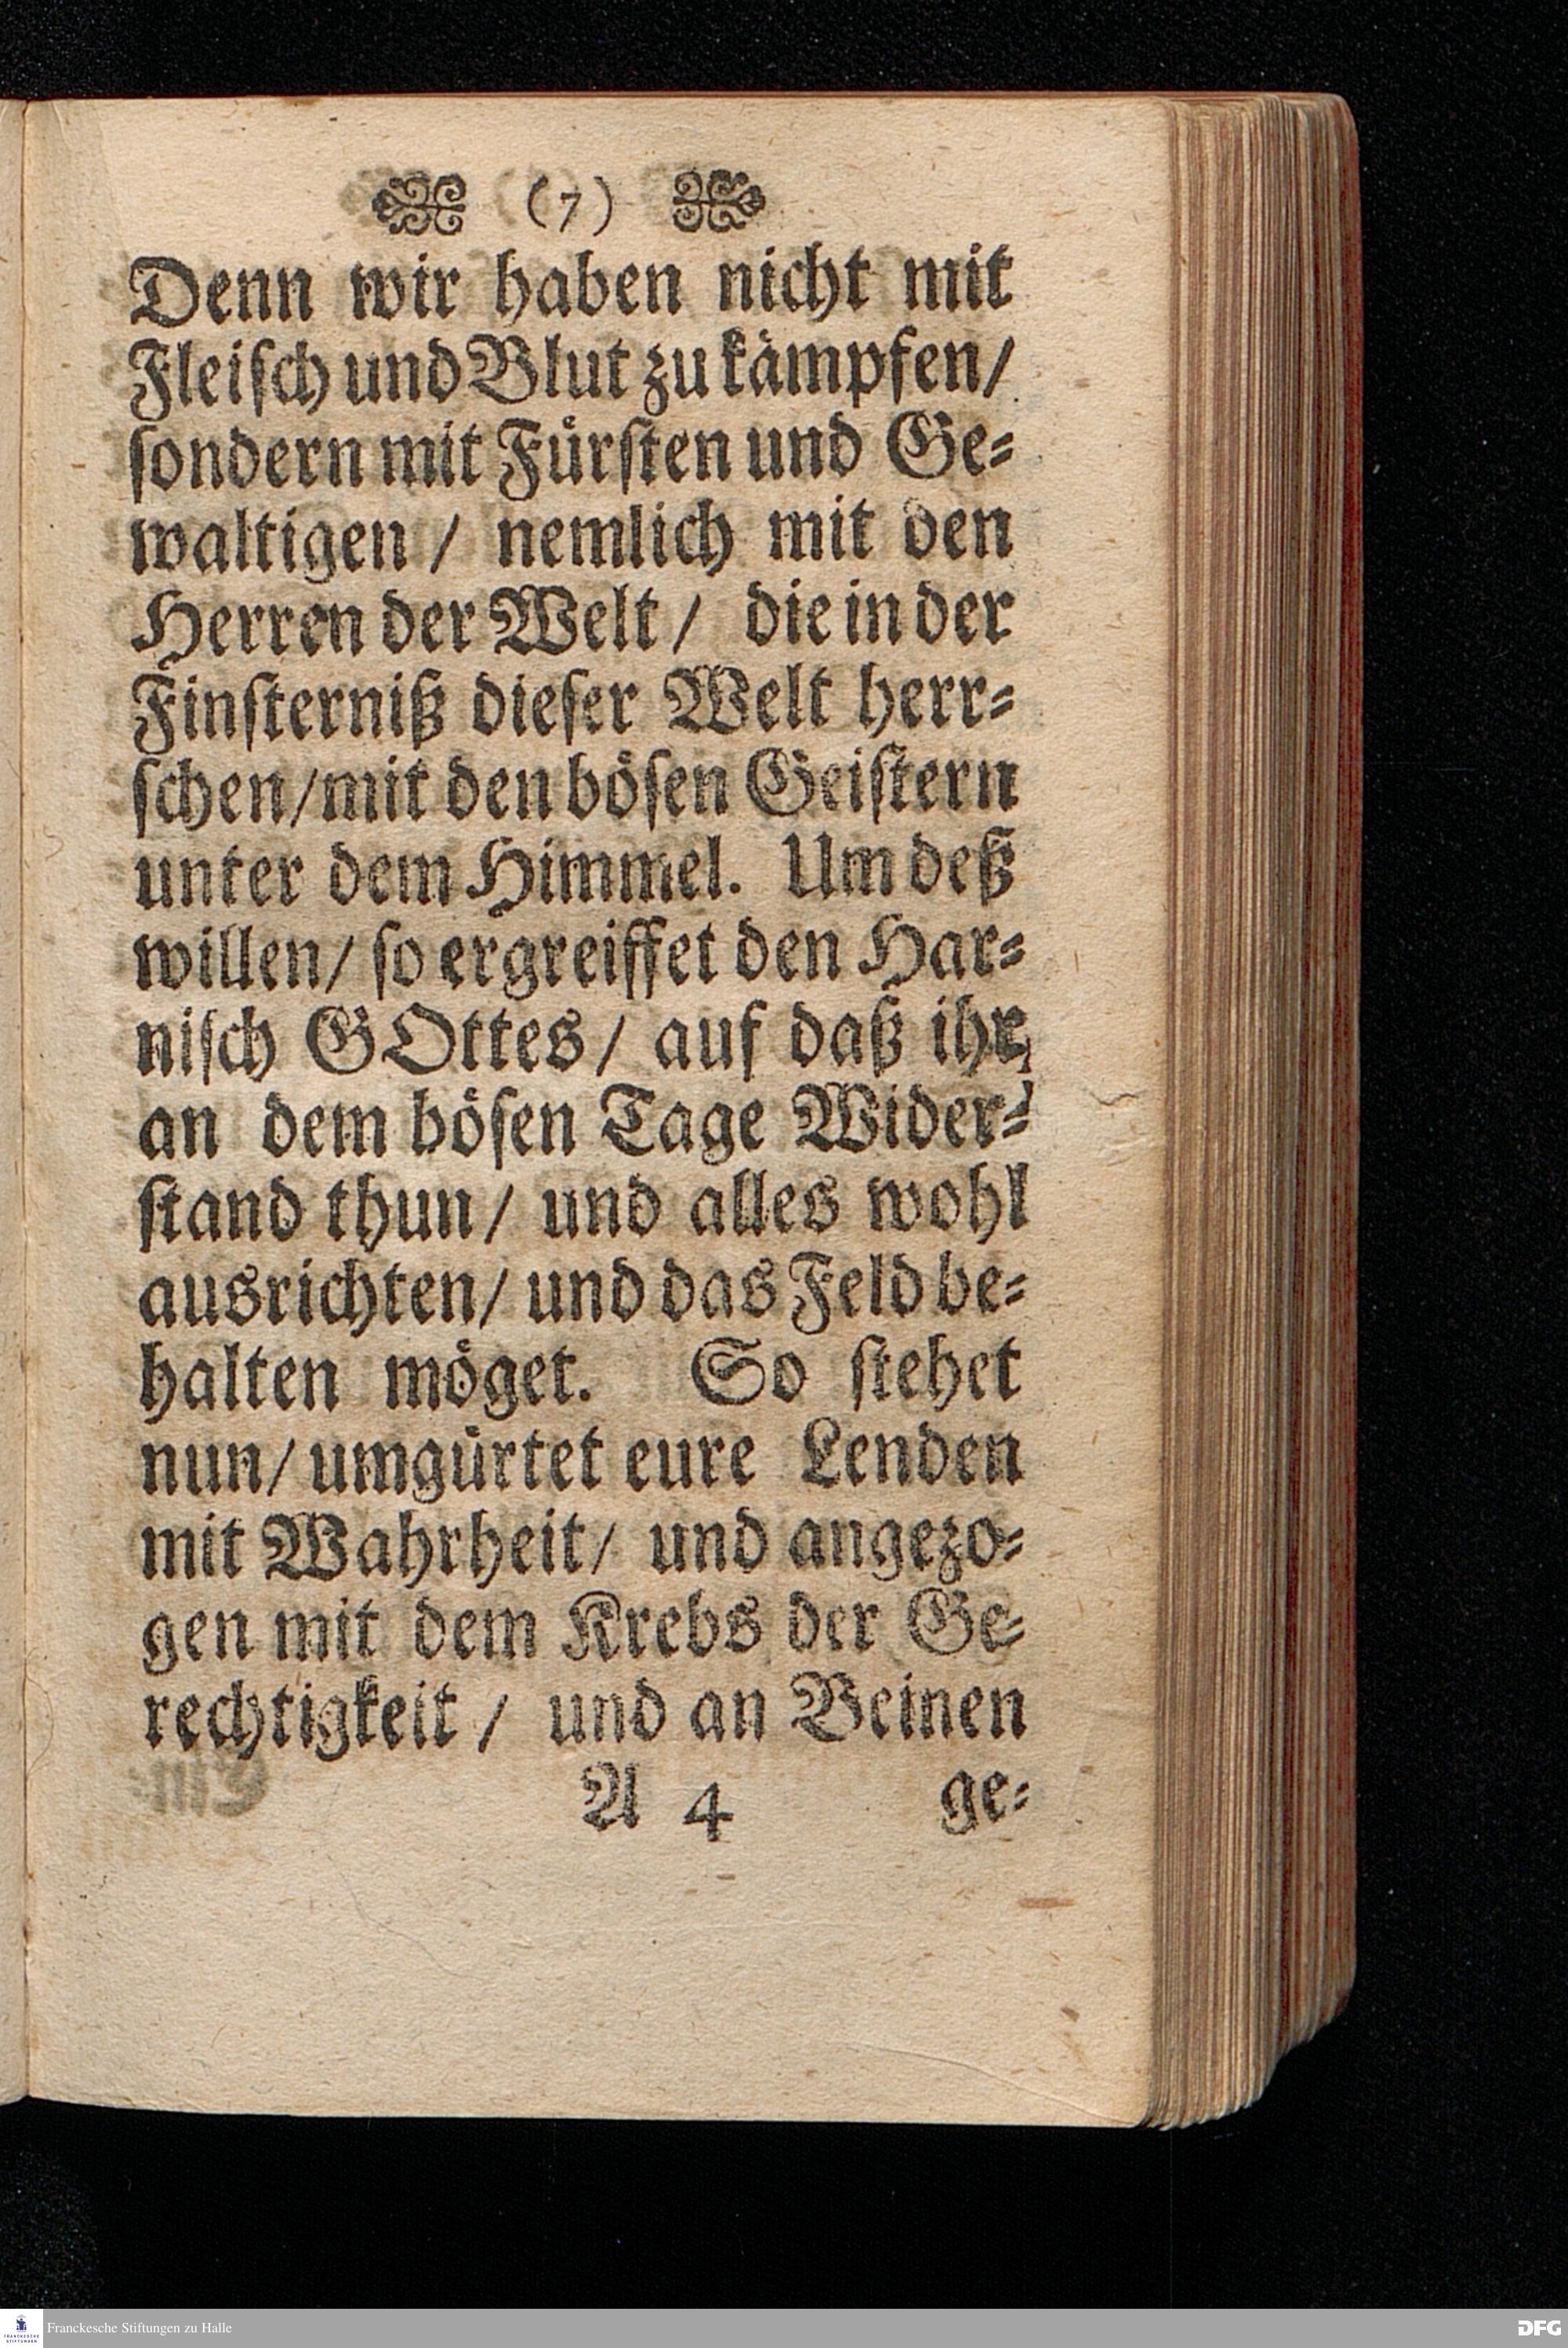 (7)
Denn wir haben nicht mit
Fleiſch und Blut zu kämpfen/
ſondern mit Fürſten und Ge⸗
waltigen / nemlich mit den
Herren der Welt / die in der
Finſterniß dieſer Welt herr⸗
ſchen/mit den böſen Geiſtern
unter dem Himmel. Um deß
willen/ ſo ergreiffet den Har⸗
niſch GOttes/ auf daß ihr
an dem böſen Tage Wider⸗
ſtand thun/ und alles wohl
ausrichten/ und das Feld be⸗
halten möget. So ſtehet
nun/ umgürtet eure Lenden
mit Wahrheit/ und angezo⸗
gen mit dem Krebs der Ge⸗
rechtigkeit / und an Beinen
A 4 ge⸗
FRANCKESCHE
STIFTUNGEN
Franckesche Stiftungen zu Halle
DFG